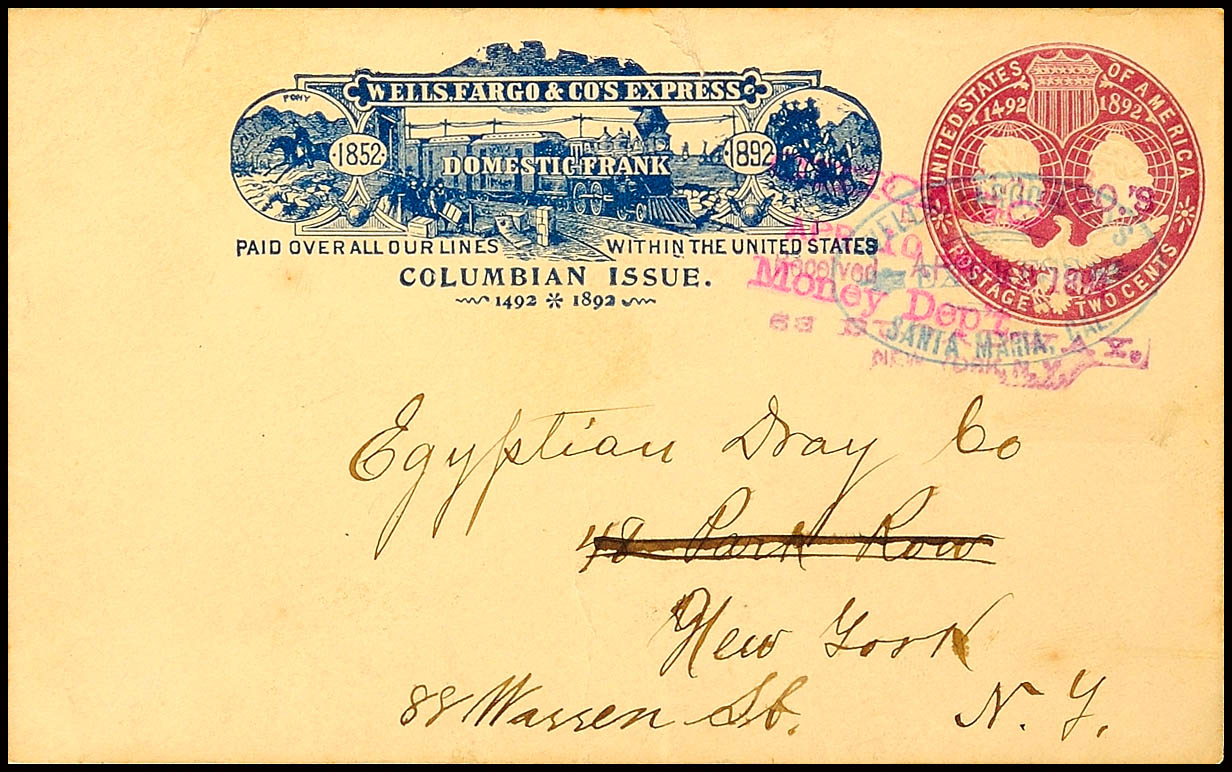 PONY
WELLS, FARGO & CO'S EXPRESS
·1852·
DOMESTIC FRANK
1892
PAID OVER ALL OUR LINES WITHIN THE UNITED STATES
COLUMBIAN ISSUE.
1492 ※ 1892
UNITED STATES OF AMERICA
1492 1892
POSTAGE TWO CENTS
CO.'S
Received
Money Dep't
63
NEW YORK, N.Y.
SANTA MARIA, CAL.
Egyptian Dray Co
48 Park Row
New York
88 Warren St. N. Y.